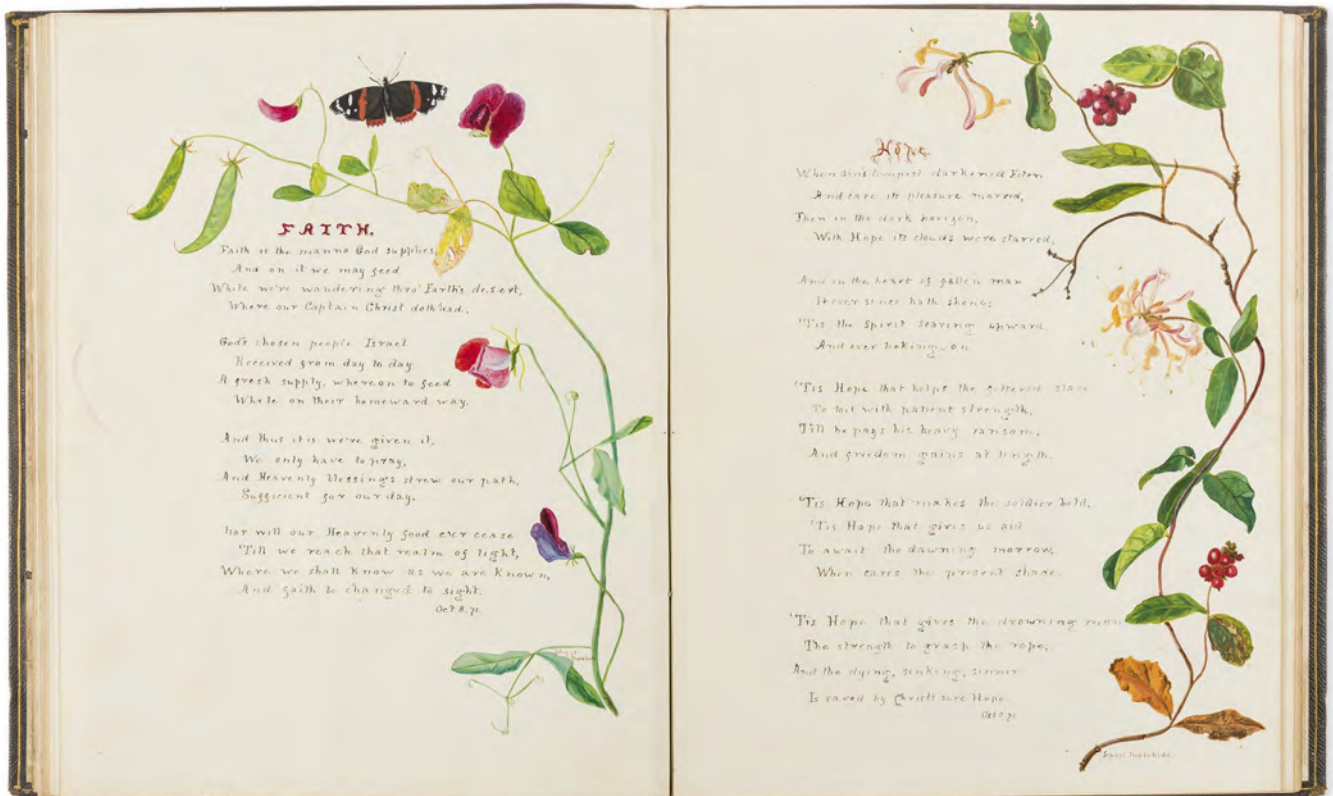 FAITH.
Faith is the manna God supplies,
And on it we may feed
While we're wandering thro' Earth's desert,
Where our Captain Christ doth lead.
God's chosen people Israel
Received from day to day
A fresh supply, whereon to feed
While on their homeward way.
And thus it is we're given it,
We only have to pray,
And Heavenly blessings strew our path,
Sufficient for our day.
Nor will our Heavenly food ever cease
'Till we reach that realm of light,
Where we shall know as we are known,
And faith be changed to sight.
Oct. 8. 71.
Hope
When Sin's tempest darkened Eden
And care its pleasure marred,
Then in the dark horizon,
With Hope its clouds were starred,
And in the heart of fallen man
It ever since hath shone;
'Tis the Spirit soaring upward
And ever looking on.
'Tis Hope that helps the fettered slave
To toil with patient strength,
Till he pays his heavy ransom,
And freedom gains at length.
'Tis Hope that makes the soldier bold,
'Tis Hope that gives us aid
To await the dawning morrow,
When cares the present shade.
'Tis Hope that gives the drowning man
The strength to grasp the rope,
And the dying, sinking, sinner
Is saved by Christ's sure Hope.
Oct 71